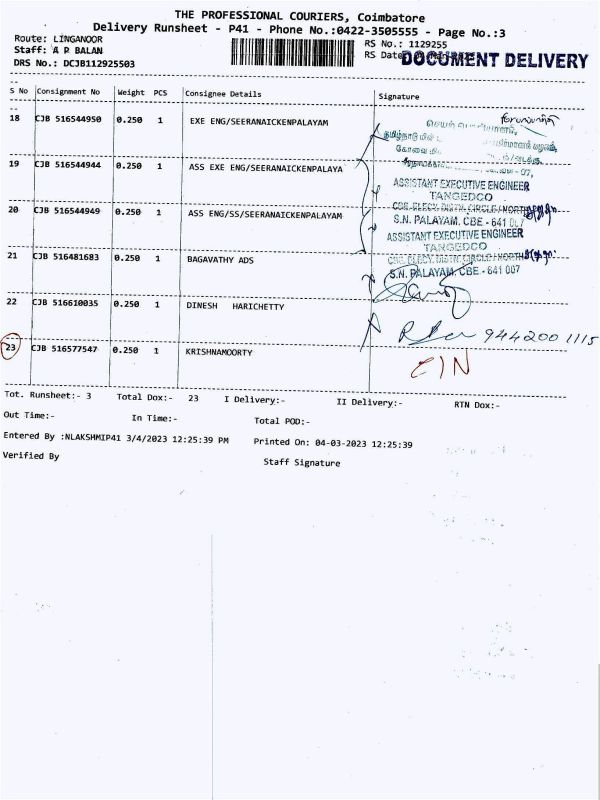 THE PROFESSIONAL COURIERS, Coimbatore
Delivery Runsheet - P41 - Phone No.:0422-3505555 - Page No.:3
Route: LINGANOOR
RS No.: 1129255
Staff: A P BALAN
RS Date
DOCUMENT DELIVERY
DRS No.: DCJB112925503
S No Consignment No Weight PCS Consignee Details Signature
18 CJB 516544950 0.250 1 EXE ENG/SEERANAICKENPALAYAM
19 CJB 516544944 0.250 1 ASS EXE ENG/SEERANAICKENPALAYA
ASSISTANT EXECUTIVE ENGINEER
TANGEDCO
20 CJB 516544949 0.250 1 ASS ENG/SS/SEERANAICKENPALAYAM
CBE ELECY. DISTN. CIRCLE/NORTH
S.N. PALAYAM, CBE - 641 007
ASSISTANT EXECUTIVE ENGINEER
TANGEDCO
21 CJB 516481683 0.250 1 BAGAVATHY ADS
CBE ELECY. DISTN. CIRCLE/NORTH
S.N. PALAYAM, CBE - 641 007
22 CJB 516610035 0.250 1 DINESH HARICHETTY
944200 1115
23 CJB 516577547 0.250 1 KRISHNAMOORTY
Tot. Runsheet:- 3 Total Dox:- 23 I Delivery:- II Delivery:- RTN Dox:-
Out Time:- In Time:- Total POD:-
Entered By :NLAKSHMIP41 3/4/2023 12:25:39 PM Printed On: 04-03-2023 12:25:39
Verified By Staff Signature